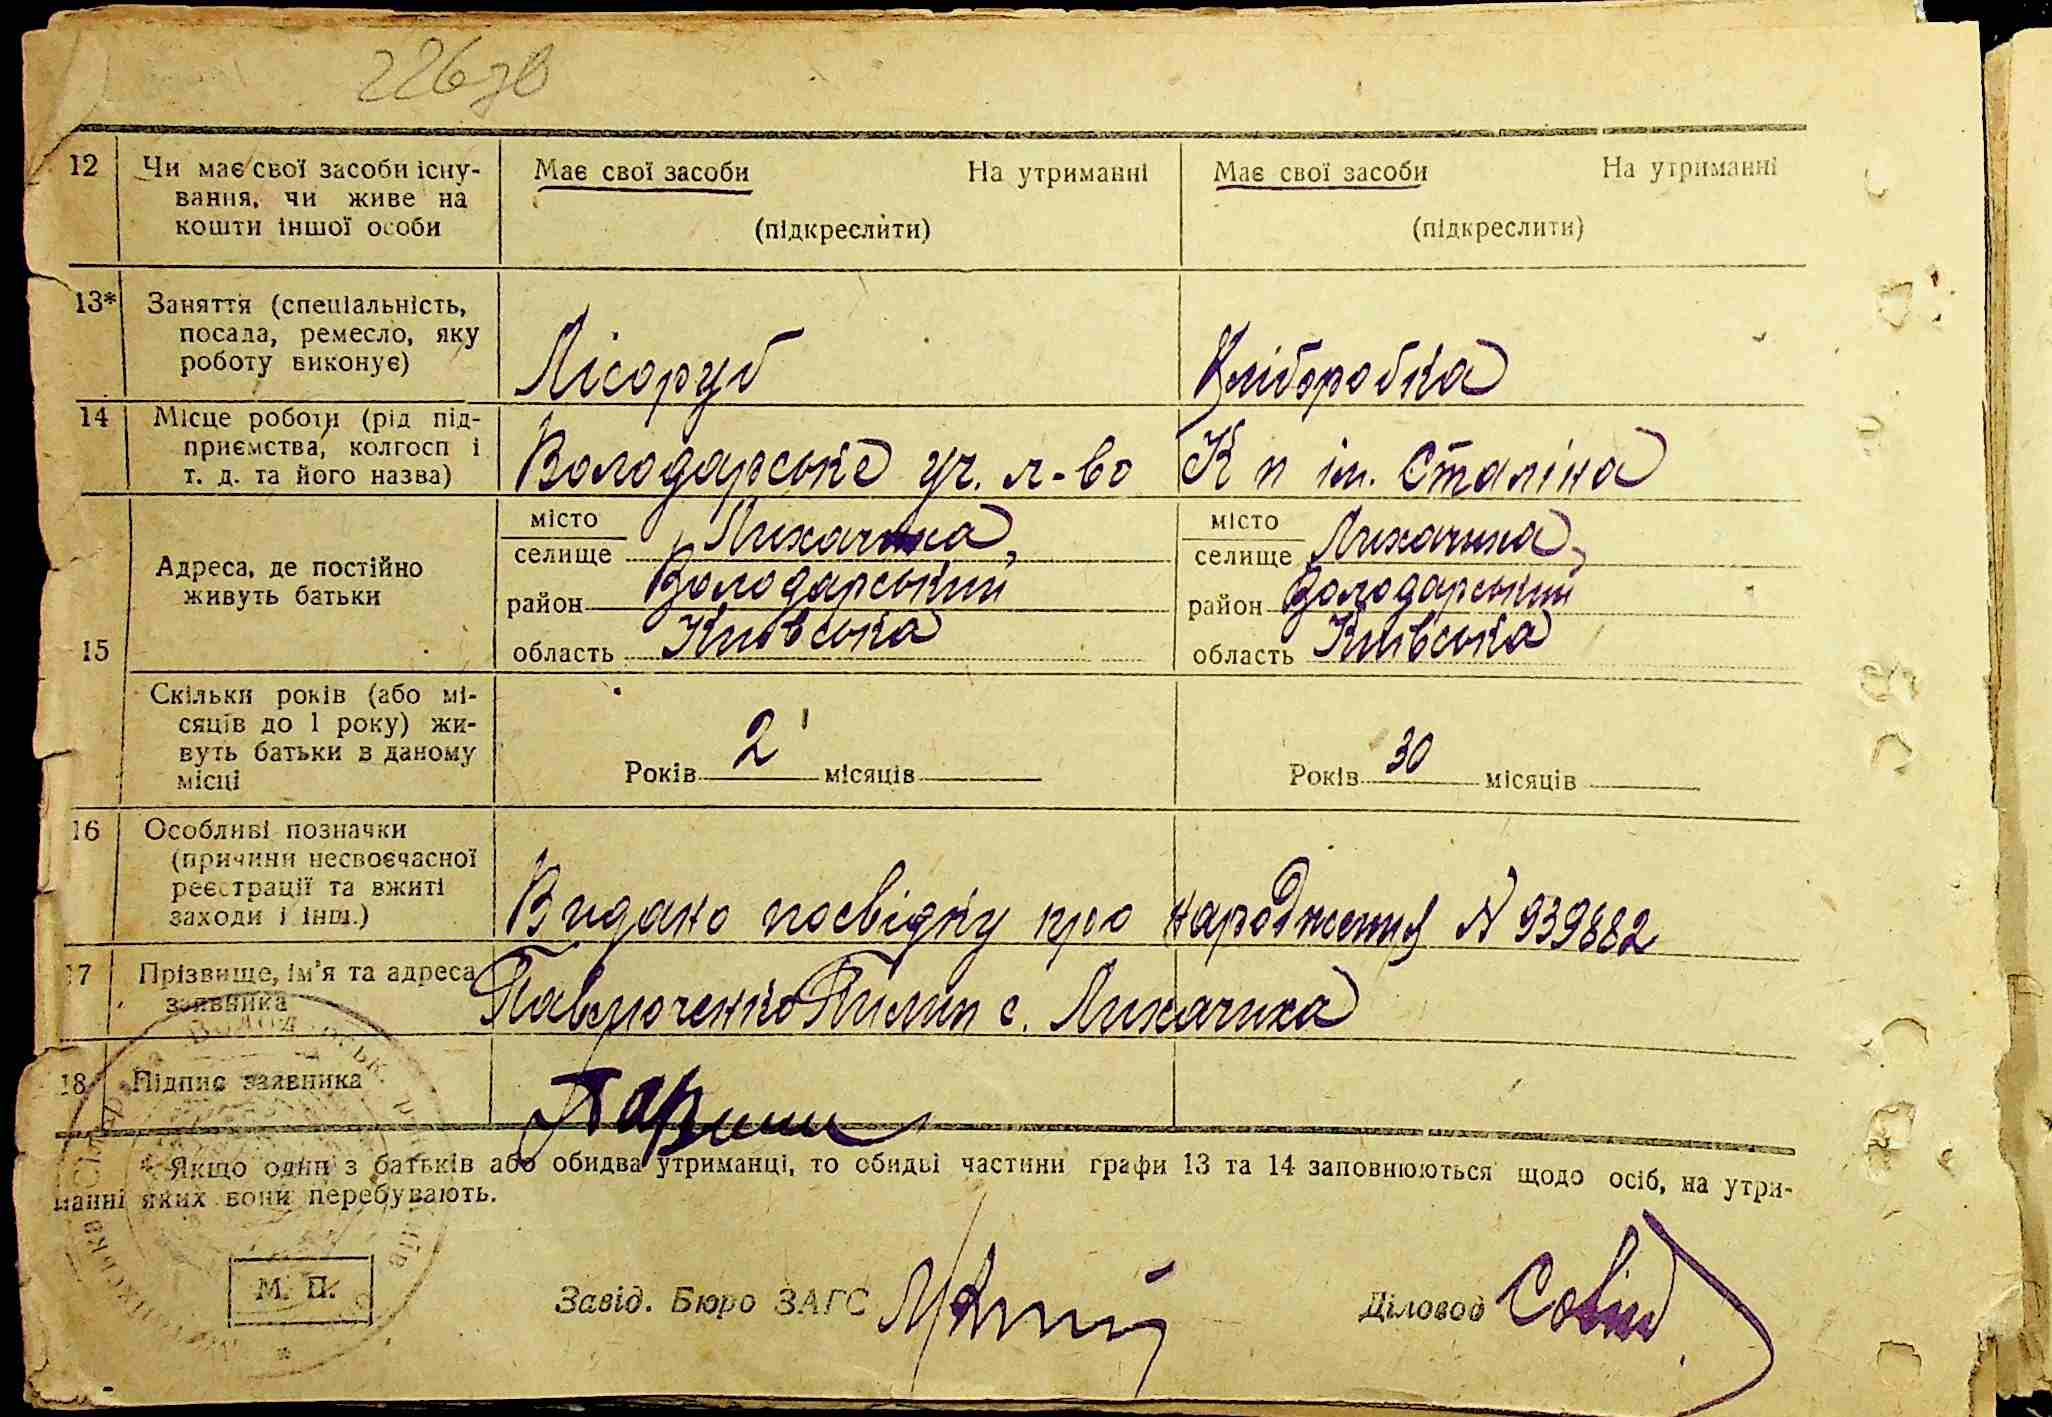 226зв
12 Чи має свої засоби існу- Має свої засоби На утриманні Має свої засоби На утриманні
вання, чи живе на
кошти іншої особи (підкреслити) (підкреслити)
13* Заняття (спеціальність,
посада, ремесло, яку
роботу виконує) Лісоруб Хліборобка
14 Місце роботи (рід під-
приємства, колгосп і Володарське уч. л-во К п ім. Сталіна
т. д. та його назва)
місто Лихачиха, місто Лихачиха,
селище селище
Адреса, де постійно
живуть батьки район Володарський район Володарський
15 область Київська область Київська
Скільки років (або мі-
сяців до 1 року) жи-
вуть батьки в даному Років 2 місяців Років 30 місяців
місці
16 Особливі позначки
(причини несвоєчасної
реєстрації та вжиті
заходи і інш.) Видано посвідку про народження N 939882
17 Прізвище, ім'я та адреса
заявника Павлюченко Пилип с. Лихачиха
18 Підпис заявника
* Якщо один з батьків або обидва утриманці, то обидві частини графи 13 та 14 заповнюються щодо осіб, на утри-
манні яких вони перебувають.
М. П. Завід. Бюро ЗАГС Діловод